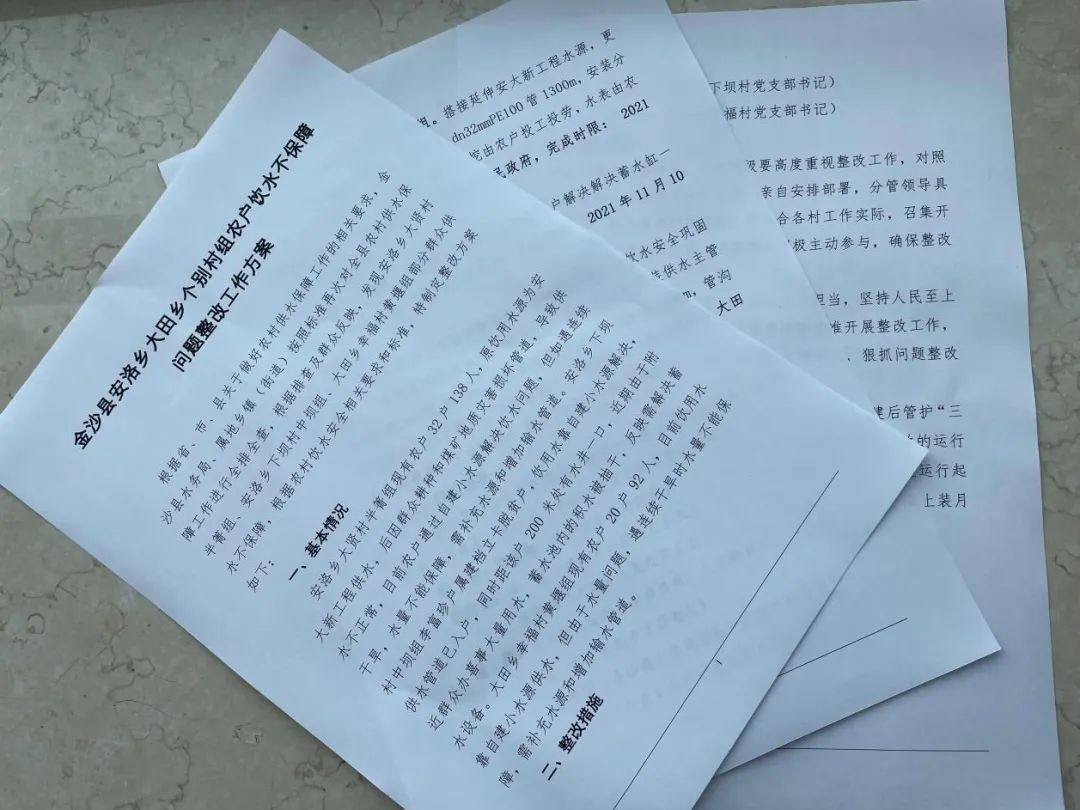 金沙县安洛乡大田乡个别村组农户饮水不保障
问题整改工作方案
根据省、市、县关于做好农村供水保障工作的相关要求，金
沙县水务局、属地乡镇（街道）按照标准再次对全县农村供水保
障工作进行全排全查，根据排查及群众反映，发现安洛乡大贤村
半箐组、安洛乡下坝村中坝组、大田乡幸福村黄堰组部分群众供
水不保障，根据农村饮水安全相关要求和标准，特制定整改方案
如下：
一、基本情况
安洛乡大贤村半箐组现有农户 32 户 138 人，原饮用水源为安
大新工程供水，后因群众耕种和煤矿地质灾害损坏管道，导致供
水不正常，目前农户通过自建小水源解决饮水问题，但如遇连续
干旱，水量不能保障，需补充水源和增加输水管道。安洛乡下坝
村中坝组李富珍户属建档立卡脱贫户，饮用水靠自建小水源解决，
供水管道已入户，同时距该户 200 米处有水井一口，近期由于附
近群众办喜事大量用水，蓄水池内的积水被抽干，反映需解决蓄
水设备。大田乡幸福村黄堰组现有农户 20 户 92 人，目前饮用水
靠自建小水源供水，但由于水量问题，遇连续干旱时水量不能保
障，需补充水源和增加输水管道。
二、整改措施
1
。搭接延伸安大新工程水源，更
dn32mmPE100 管 1300m，安装分
由农户投工投劳，水表由农
民政府，完成时限： 2021
户解决解决蓄水缸一
2021 年 11 月 10
饮水安全巩固
供水主管
，管沟
大田
下坝村党支部书记）
福村党支部书记）
级要高度重视整改工作，对照
亲自安排部署，分管领导具
合各村工作实际，召集开
极主动参与，确保整改
担当，坚持人民至上
准开展整改工作，
、狠抓问题整改
建后管护“三
的运行
运行起
上装月